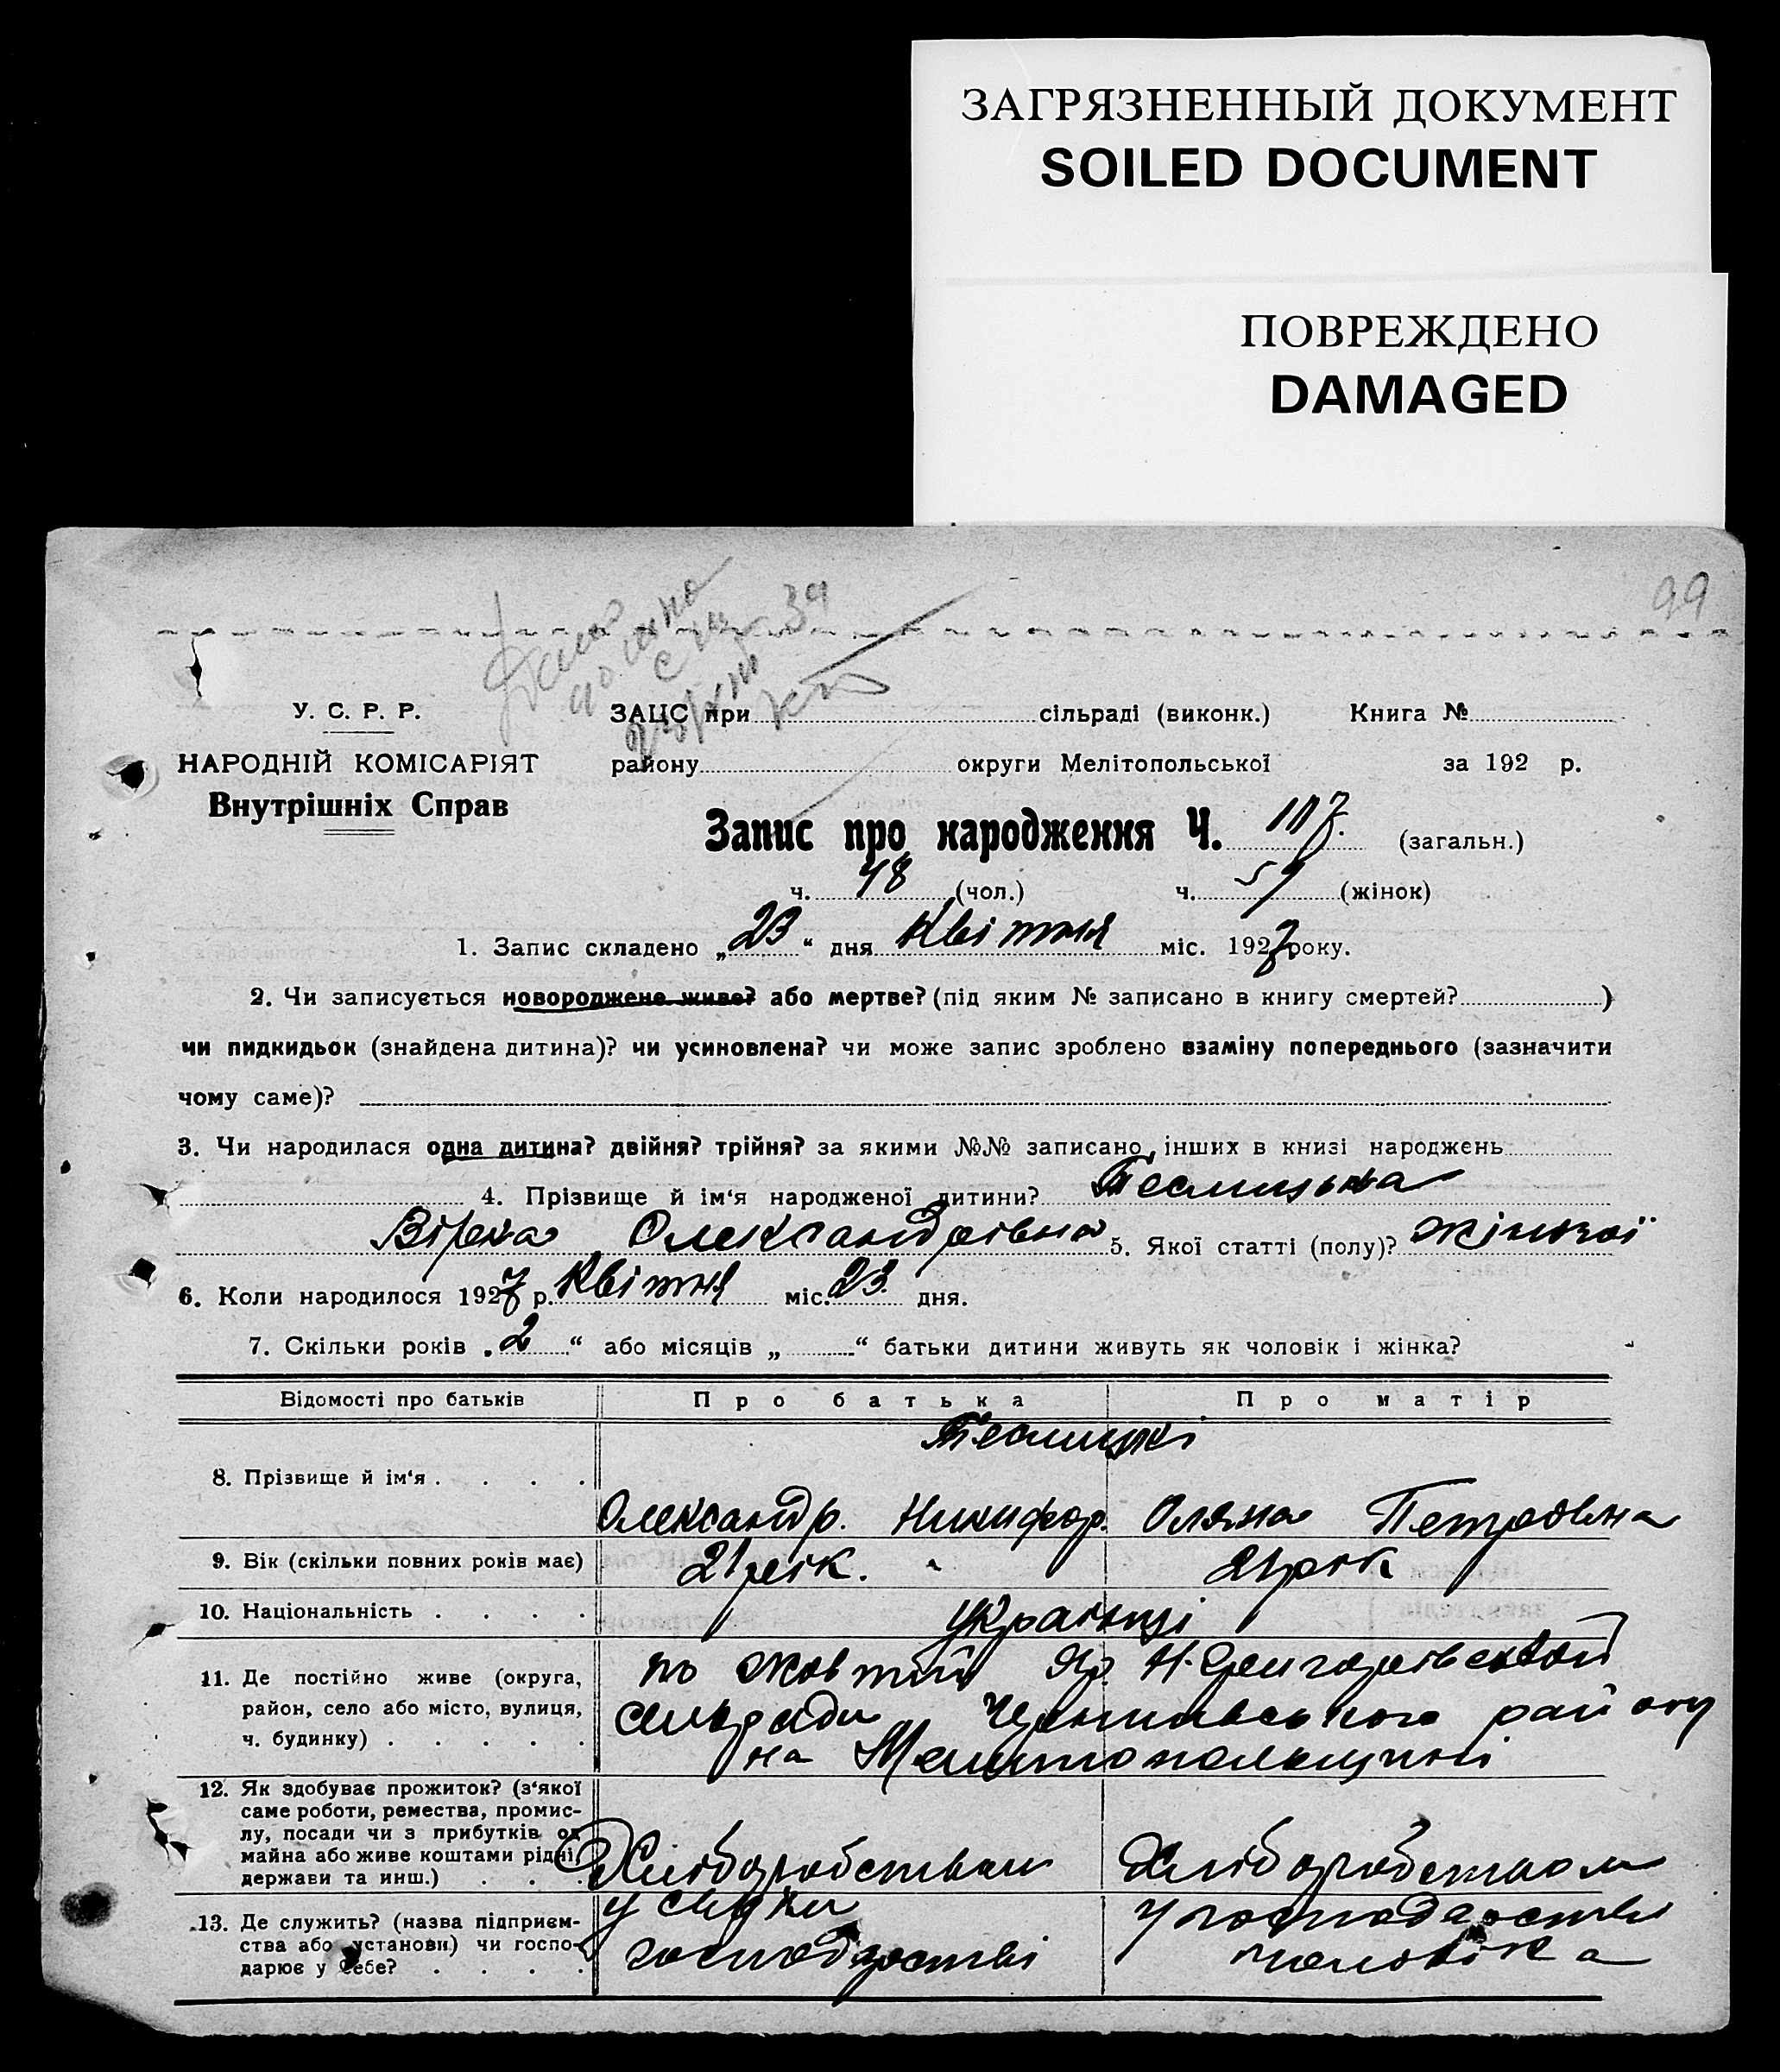 ЗАГРЯЗНЕННЫЙ ДОКУМЕНТ
SOILED DOCUMENT
ПОВРЕЖДЕНО
DAMAGED
99
39
У. С. Р. Р.
ЗАЦС при сільраді (виконк.) Книга №
НАРОДНІЙ КОМІСАРІЯТ
району округи Мелітопольської за 192 р.
Внутрішніх Справ
Запис про народження Ч. 117. (загальн.)
ч. 48 (чол.) ч. 59 (жінок)
1. Запис складено „23“ дня Квітня міс. 1927 року.
2. Чи записується новороджене живе? або мертве? (під яким № записано в книгу смертей? )
чи пидкидьок (знайдена дитина)? чи усиновлена? чи може запис зроблено взаміну попереднього (зазначити
чому саме)?
3. Чи народилася одна дитина? двійня? трійня? за якими №№ записано інших в книзі народжень
4. Прізвище й ім'я народженої дитини?
Віра Олександрівна 5. Якої статті (полу)? жіночої
6. Коли народилося 1927 р. Квітня міс. 23. дня.
7. Скільки років „2“ або місяців „ “ батьки дитини живуть як чоловік і жінка?
Відомості про батьків Про батька Про матір
8. Прізвище й ім'я . . . .
Олександр. Никифор. Оляна Петровна
9. Вік (скільки повних років має) 21 рік. 21 рік
10. Національність . . . . українці
11. Де постійно живе (округа,
район, село або місто, вулиця,
ч. будинку) . . . . .
сільради району
на Мелитопольщині
12. Як здобуває прожиток? (з'якої
саме роботи, ремества, промис-
лу, посади чи з прибутків од
майна або живе коштами рідні,
держави та инш.) . . .
Хліборобством Хліборобством
13. Де служить? (назва підприєм-
ства або установи) чи госпо-
дарює у себе? . . . .
господарстві
у господарстві
чоловіка